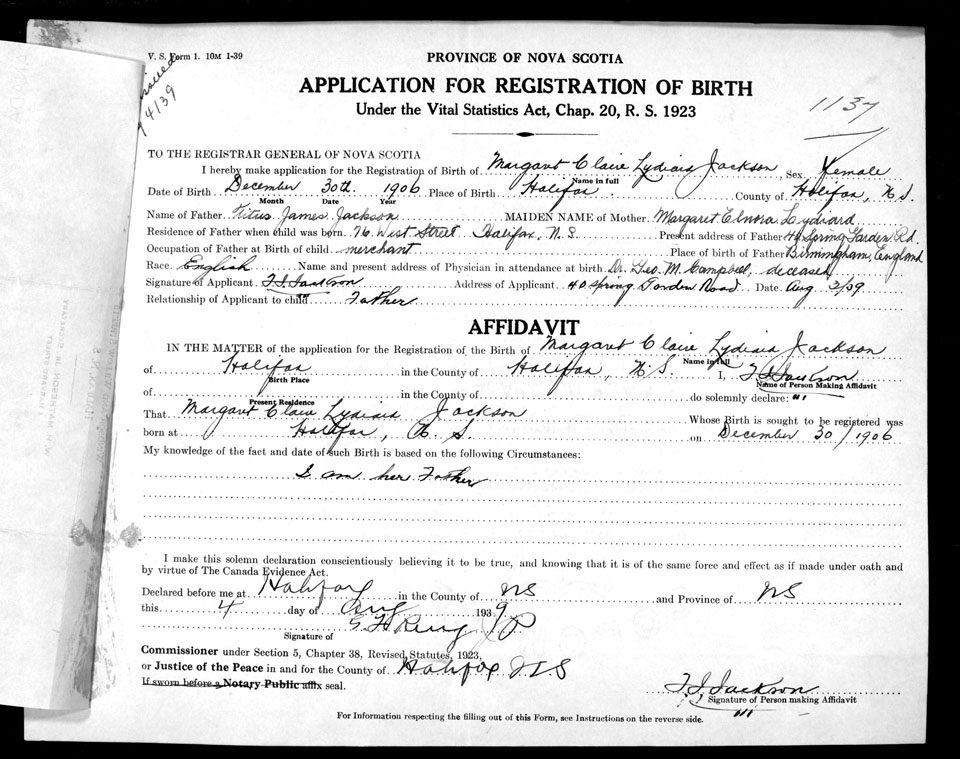 V. S. Form 1. 10M 1-39
PROVINCE OF NOVA SCOTIA
APPLICATION FOR REGISTRATION OF BIRTH
Under the Vital Statistics Act, Chap. 20, R. S. 1923
1137
4139
TO THE REGISTRAR GENERAL OF NOVA SCOTIA
I hereby make application for the Registration of Birth of Margaret Claire Lydiard Jackson, Sex Female
Name in full
Date of Birth December 30th. 1906 Place of Birth Halifax. County of Halifax, N.S.
Month Date Year
Name of Father Titus James Jackson MAIDEN NAME of Mother Margaret Lydiard
Residence of Father when child was born 76 West Street Halifax, N.S. Present address of Father 40 Spring Garden Rd.
Occupation of Father at Birth of child merchant Place of birth of Father Birmingham, England
Race English Name and present address of Physician in attendance at birth Dr. Geo. M. Campbell, deceased
Signature of Applicant T.J. Jackson Address of Applicant 40 Spring Garden Road Date Aug 3/39
Relationship of Applicant to child Father
AFFIDAVIT
IN THE MATTER of the application for the Registration of the Birth of Margaret Claire Lydiard Jackson
Name in full
of Halifax in the County of Halifax, N.S. I, T J Jackson
Birth Place Name of Person Making Affidavit
of in the County of do solemnly declare:
Present Residence
That Margaret Claire Lydiard Jackson Whose Birth is sought to be registered was
born at Halifax, N.S. on December 30/1906
My knowledge of the fact and date of such Birth is based on the following Circumstances:
I am her Father
I make this solemn declaration conscientiously believing it to be true, and knowing that it is of the same force and effect as if made under oath and
by virtue of The Canada Evidence Act.
Declared before me at Halifax in the County of NS and Province of NS
this 4 day of Aug 1939
Signature of JP
Commissioner under Section 5, Chapter 38, Revised Statutes, 1923,
or Justice of the Peace in and for the County of Halifax NS
If sworn before a Notary Public affix seal.
T J Jackson
Signature of Person making Affidavit
For Information respecting the filling out of this Form, see Instructions on the reverse side.